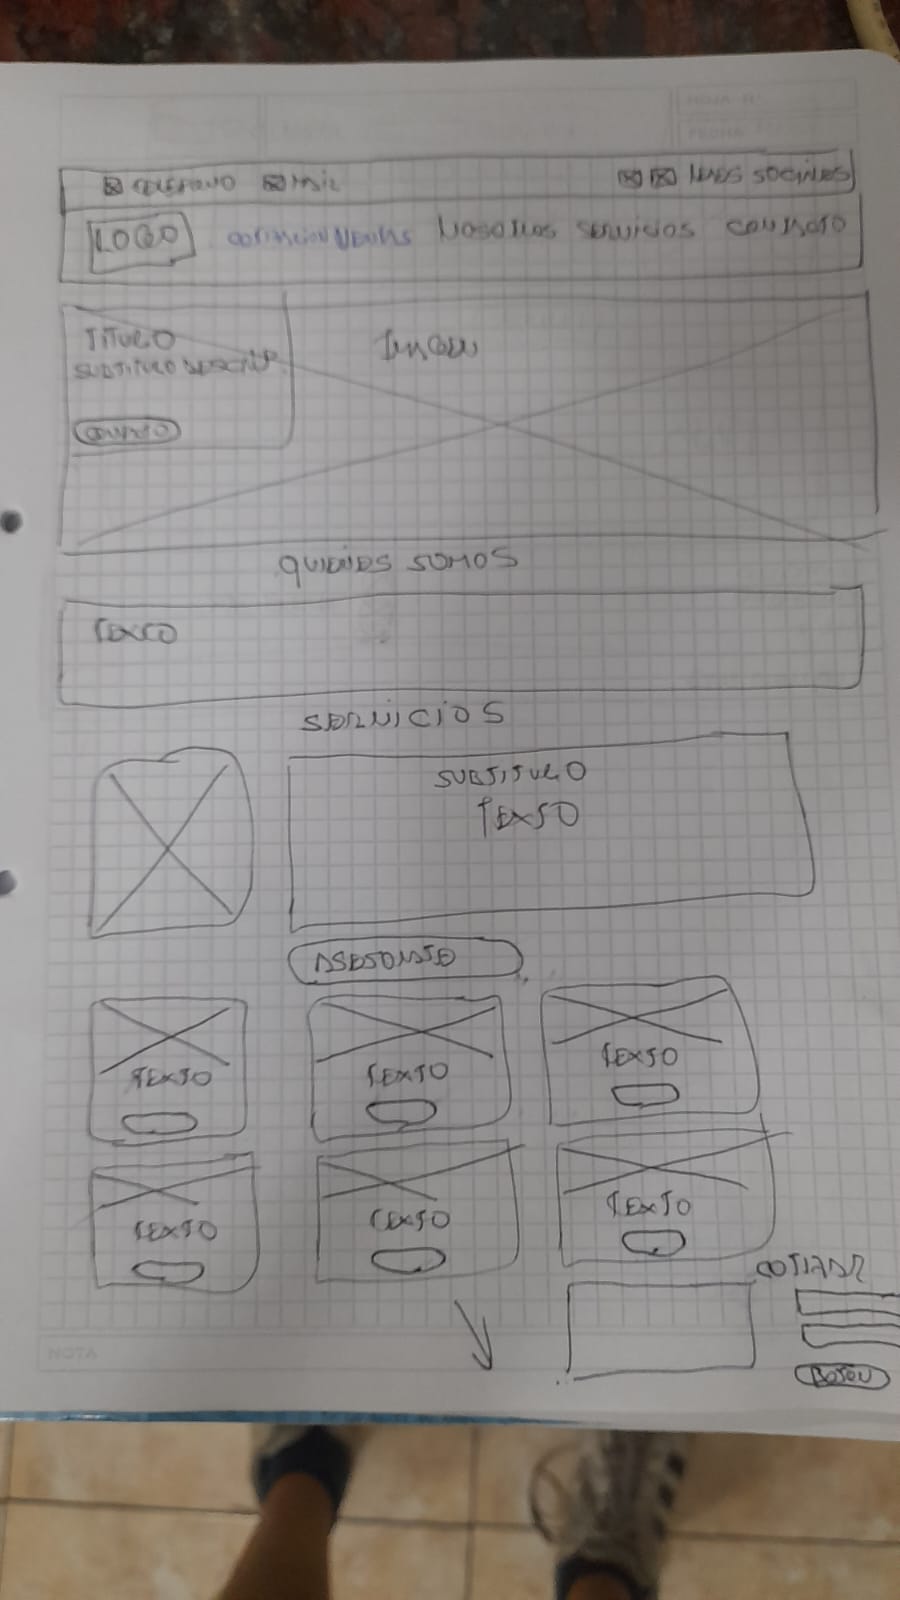 HOJA N°
FECHA
TELEFONO MAIL REDES SOCIALES
LOGO NOSOTROS SERVICIOS CONTACTO
TITULO
IMAGEN
SUBTITULO
CONTACTO
QUIENES SOMOS
TEXTO
SERVICIOS
SUBTITULO
TEXTO
TEXTO TEXTO TEXTO
TEXTO TEXTO TEXTO
COTIZADOR
BOTON
NOTA